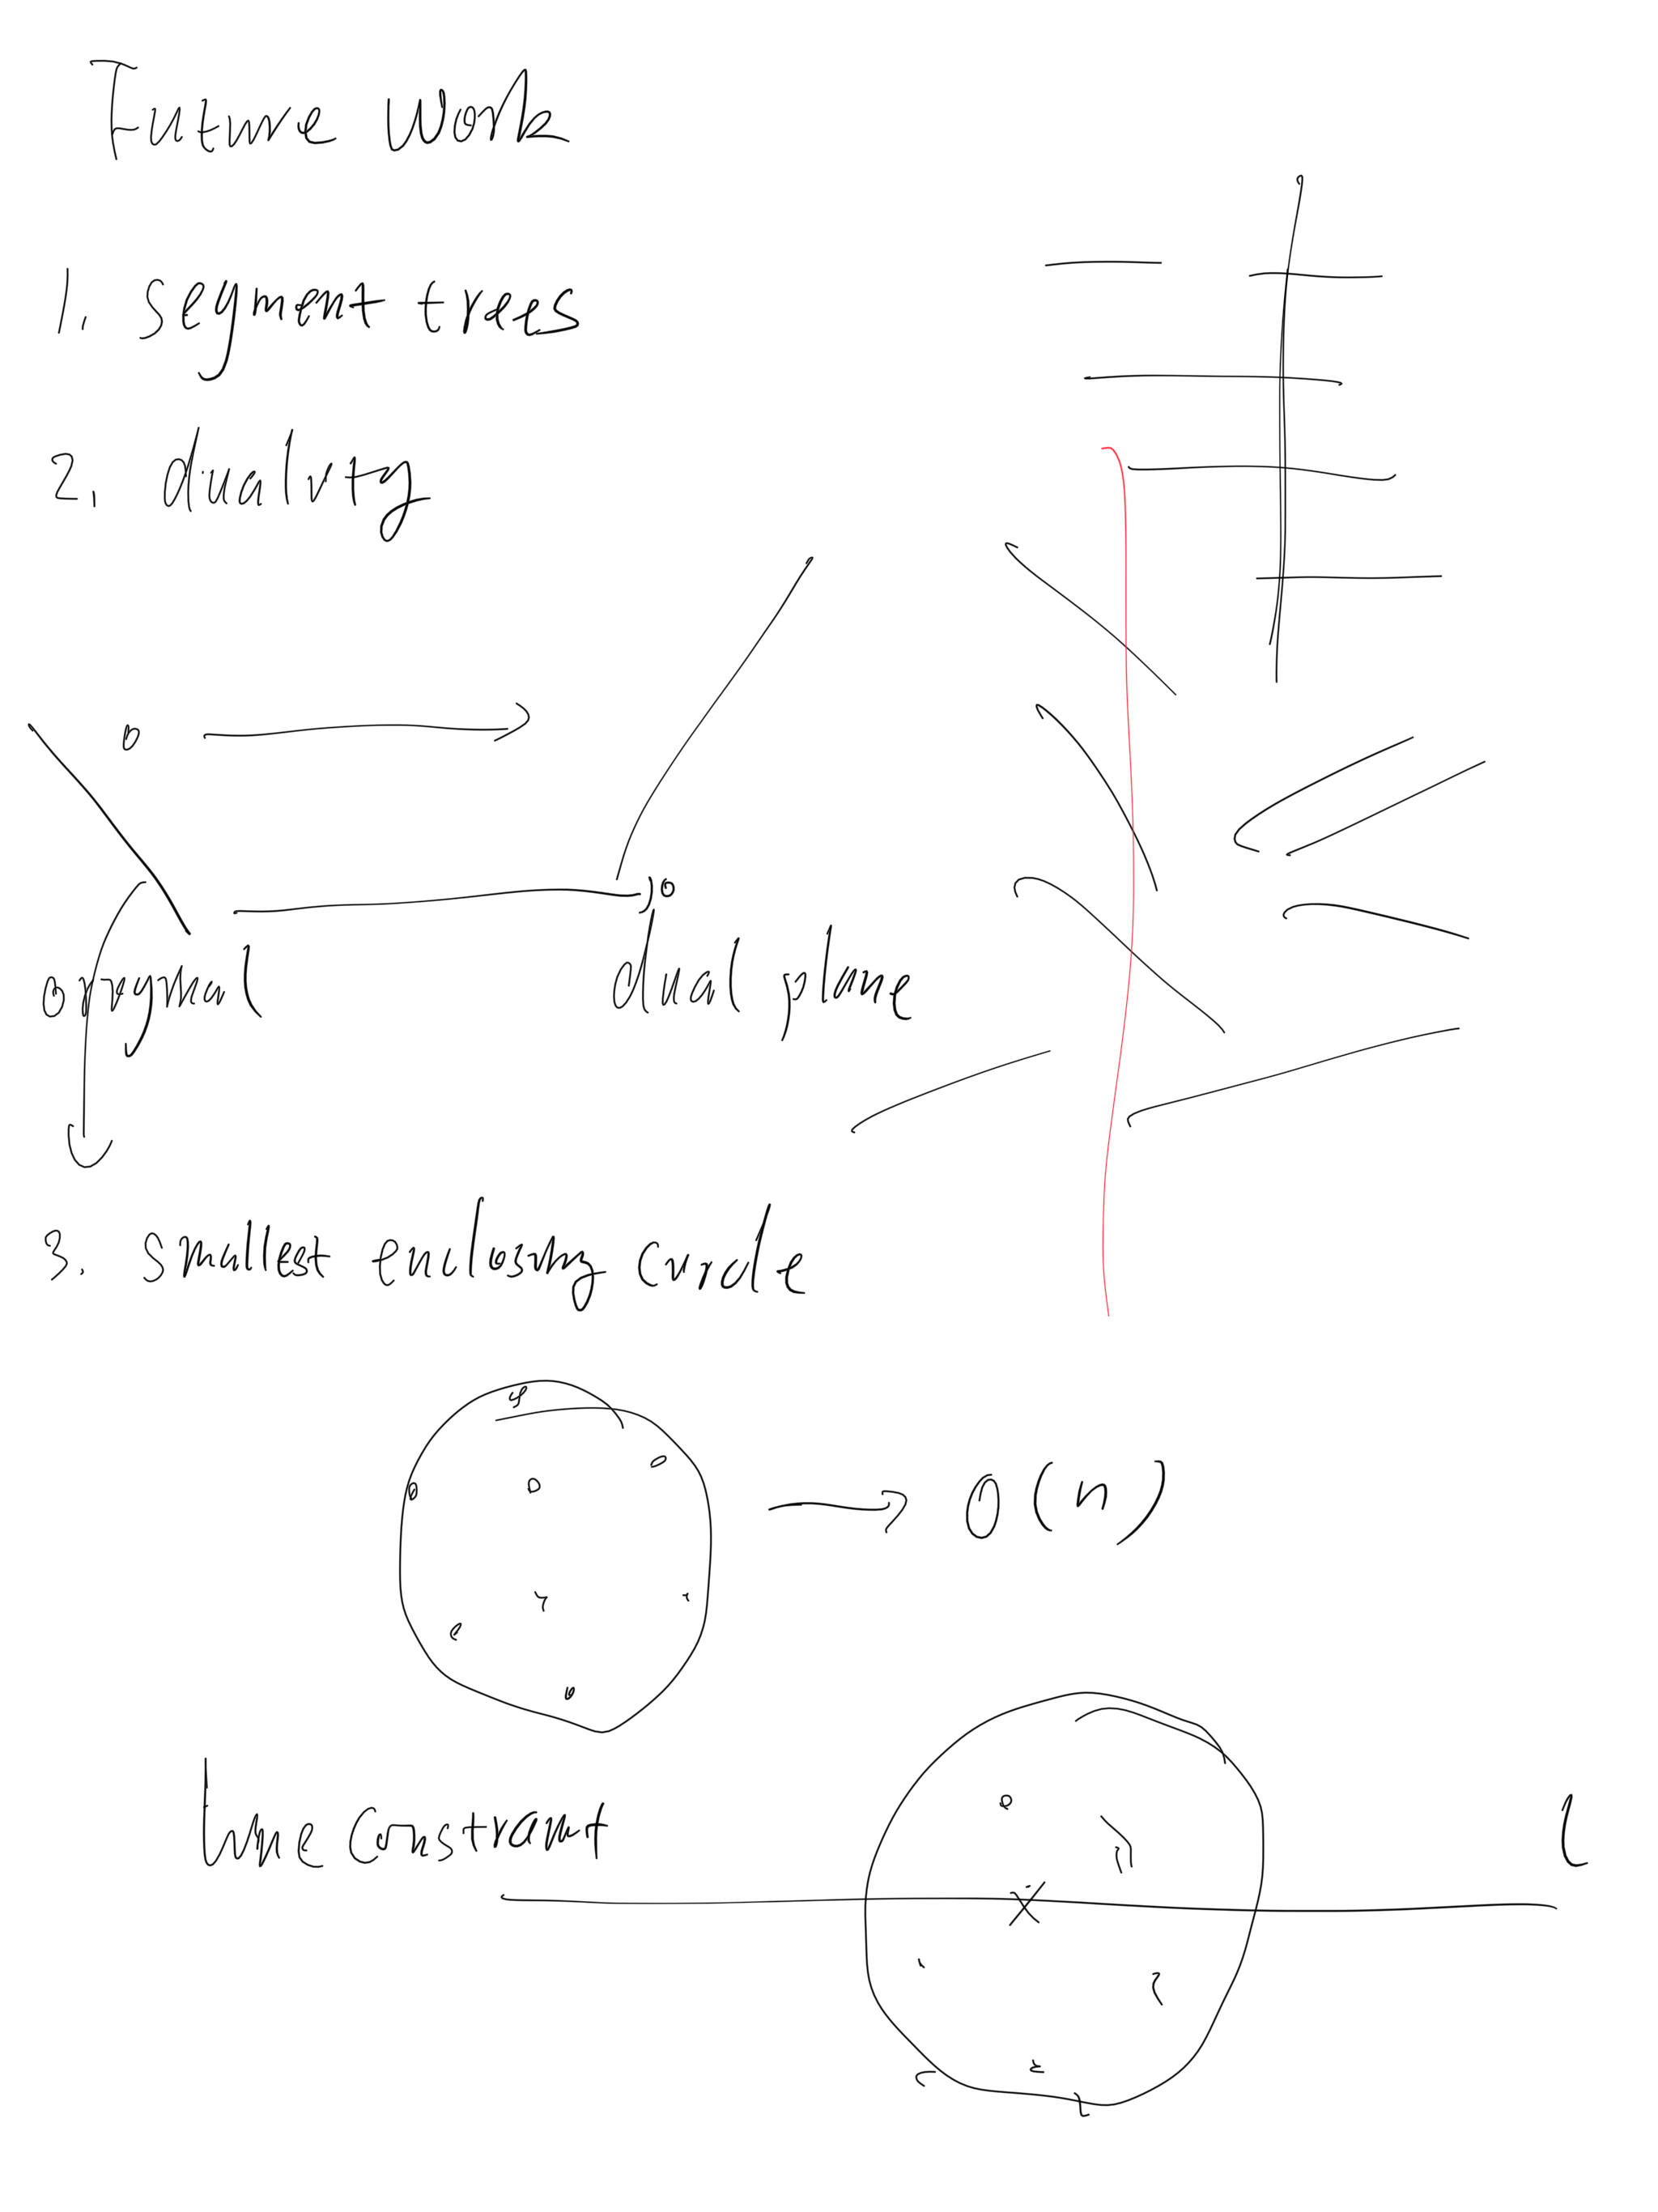 Future Work
1. segment trees
2. duality
original
dual plane
3. smallest enclosing circle
O(n)
line constraint
l